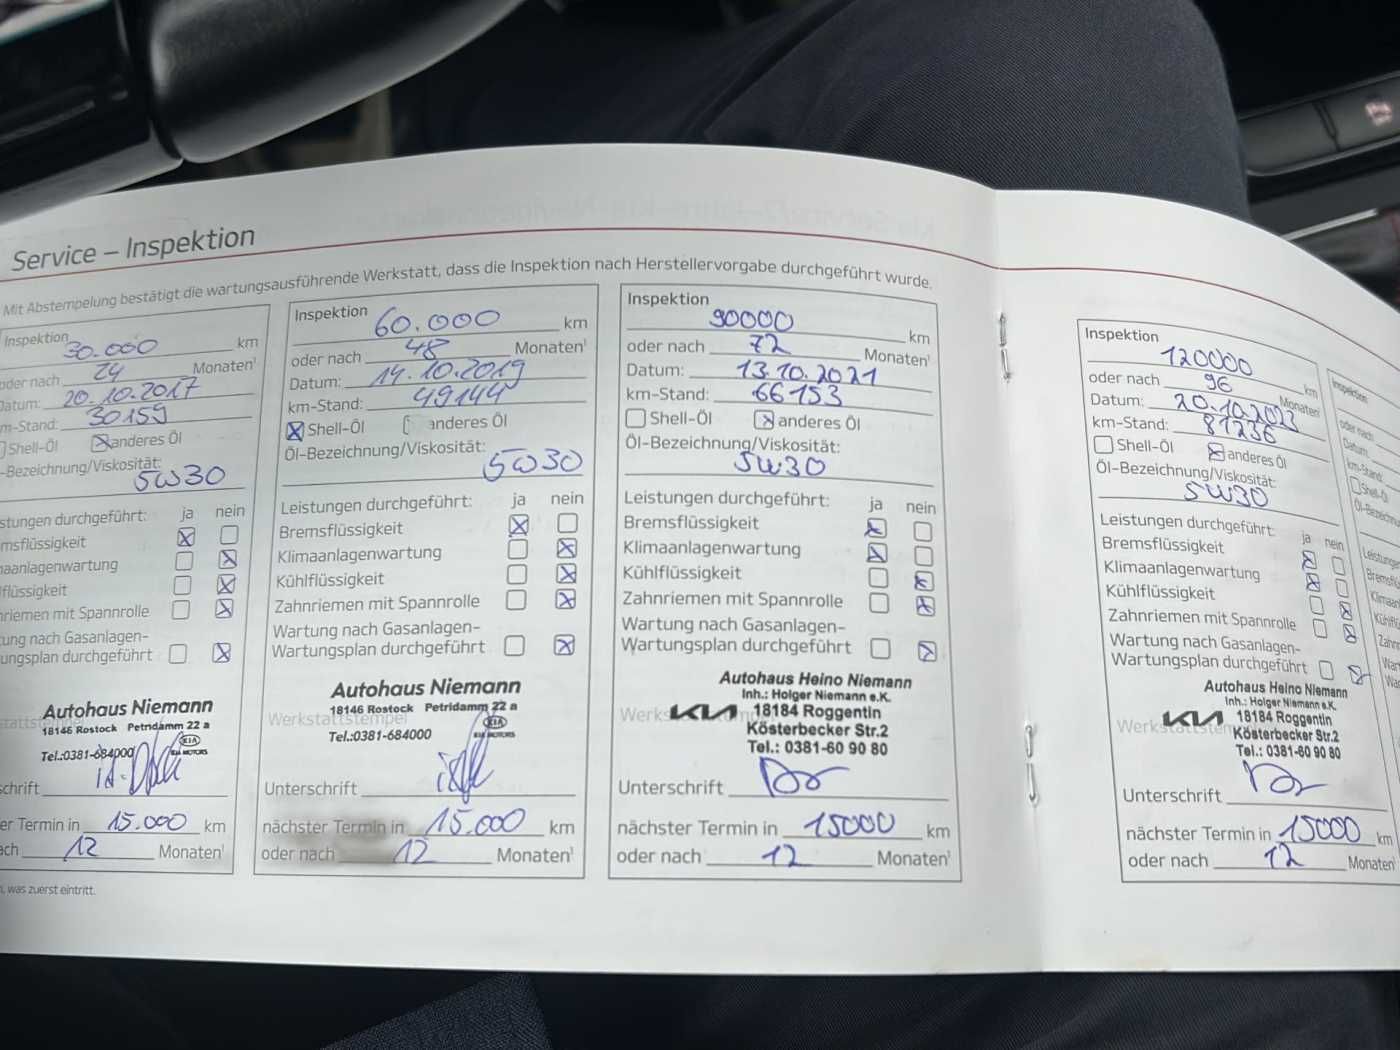 Service – Inspektion
Mit Abstempelung bestätigt die wartungsausführende Werkstatt, dass die Inspektion nach Herstellervorgabe durchgeführt wurde.
Inspektion
30.000 km
oder nach 24 Monaten¹
Datum: 20.10.2017
m-Stand: 30159
Shell-Öl anderes Öl
-Bezeichnung/Viskosität:
5W30
stungen durchgeführt: ja nein
msflüssigkeit
naanlagenwartung
lflüssigkeit
nriemen mit Spannrolle
ung nach Gasanlagen-
ungsplan durchgeführt
Autohaus Niemann
18146 Rostock Petridamm 22 a
Tel.:0381-684000
KIA MOTORS
schrift
er Termin in 15.000 km
ach 12 Monaten¹
, was zuerst eintritt.
Inspektion
60.000 km
oder nach 48 Monaten¹
Datum: 14.10.2019
km-Stand: 49144
Shell-Öl anderes Öl
Öl-Bezeichnung/Viskosität:
5W30
Leistungen durchgeführt: ja nein
Bremsflüssigkeit
Klimaanlagenwartung
Kühlflüssigkeit
Zahnriemen mit Spannrolle
Wartung nach Gasanlagen-
Wartungsplan durchgeführt
Autohaus Niemann
18146 Rostock Petridamm 22 a
Werkstattstempel
Tel.:0381-684000
KIA MOTORS
Unterschrift
nächster Termin in 15.000 km
oder nach 12 Monaten¹
Inspektion
90000 km
oder nach 72 Monaten¹
Datum: 13.10.2021
km-Stand: 66153
Shell-Öl anderes Öl
Öl-Bezeichnung/Viskosität:
5W30
Leistungen durchgeführt: ja nein
Bremsflüssigkeit
Klimaanlagenwartung
Kühlflüssigkeit
Zahnriemen mit Spannrolle
Wartung nach Gasanlagen-
Wartungsplan durchgeführt
Autohaus Heino Niemann
Inh.: Holger Niemann e.K.
KIA 18184 Roggentin
Kösterbecker Str.2
Tel.: 0381-60 90 80
Unterschrift
nächster Termin in 15000 km
oder nach 12 Monaten¹
Inspektion
120000 km
oder nach 96 Monaten¹
Datum: 20.10.2023
km-Stand: 81236
Shell-Öl anderes Öl
Öl-Bezeichnung/Viskosität:
5W30
Leistungen durchgeführt: ja nein
Bremsflüssigkeit
Klimaanlagenwartung
Kühlflüssigkeit
Zahnriemen mit Spannrolle
Wartung nach Gasanlagen-
Wartungsplan durchgeführt
Autohaus Heino Niemann
Inh.: Holger Niemann e.K.
KIA 18184 Roggentin
Kösterbecker Str.2
Tel.: 0381-60 90 80
Unterschrift
nächster Termin in 15000 km
oder nach 12 Monaten¹
Inspektion
oder nach
Datum:
km-Stand:
Shell-Öl
Öl-Bezeichn
Leistungen